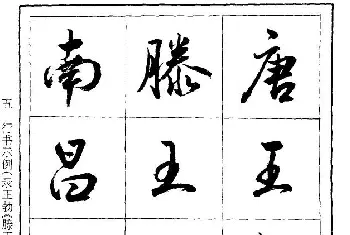 唐王
滕王
南昌
五 行书示例(录王勃《滕王